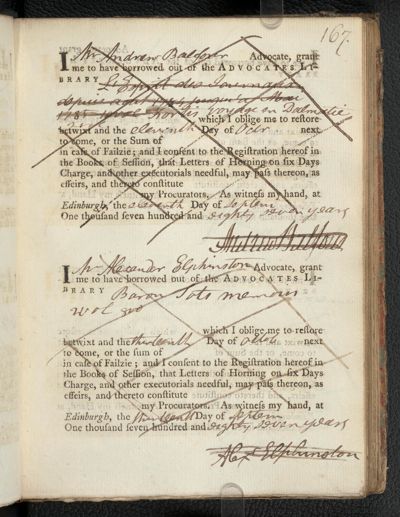 167.
I Mr Andrew Balfour Advocate, grant
me to have borrowed out of the ADVOCATES LI-
BRARY L'Esprit des Journalists
depuis
1781 Fortis voyage en Dalmatie
which I oblige me to restore
betwixt and the eleventh Day of Octr next
to come, or the Sum of
in case of Failzie; and I consent to the Registration hereof in
the Books of Session, that Letters of Horning on six Days
Charge, and other executorials needful, may pass thereon, as
effeirs, and thereto constitute
my Procurators. As witness my hand, at
Edinburgh, the eleventh Day of Septem
One thousand seven hundred and eighty seven years
Andrew Balfour
I Mr Alexander Elphinston Advocate, grant
me to have borrowed out of the ADVOCATES LI-
BRARY Baron Tots memoirs
2 vol 8vo
which I oblige me to restore
betwixt and the thirteenth Day of octor next
to come, or the sum of
in case of Failzie; and I consent to the Registration hereof in
the Books of Session, that Letters of Horning on six Days
Charge, and other executorials needful, may pass thereon, as
effeirs, and thereto constitute
my Procurators. As witness my hand, at
Edinburgh, the thirteenth Day of Septem
One thousand seven hundred and eighty seven years
Alex Elphinston